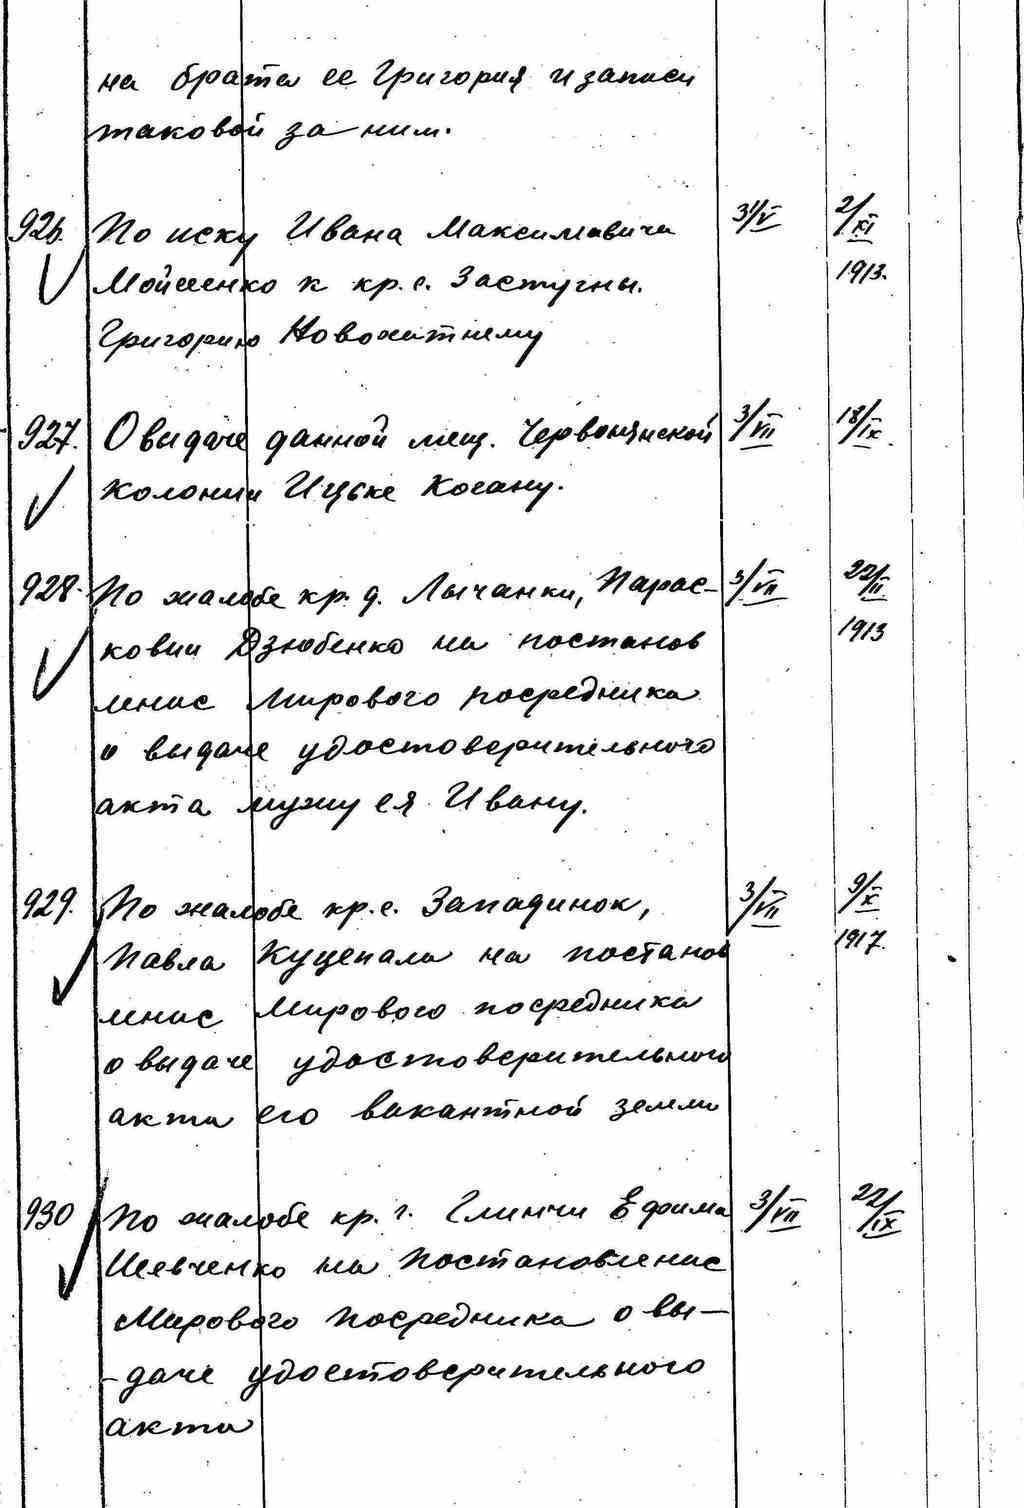 на брата ее Григория и записи
таковой за ним.
926. По иску Ивана Максимовича 3/V 2/XI
Мойсенко к кр. с. Застугны. 1913.
Григорию Новохатнему
927. О выдаче данной мещ. Червонянской 3/VII 18/IX.
Колонии Ицьке Когану.
928. По жалобе кр. д. Лычанки, Парас- 3/VII 22/II
ковии Дзюбенко на постанов 1913
ление Мирового посредника
о выдаче удостоверительного
акта мужу ея Ивану.
929. По жалобе кр. с. Западинок, 3/VII 9/X
Павла Куцепала на постанов 1917.
ление Мирового посредника
о выдаче удостоверительного
акта его вакантной земли
930 По жалобе кр. Ефима 3/VII 22/IX
Шевченко на постановление
Мирового посредника о вы-
-даче удостоверительного
акта